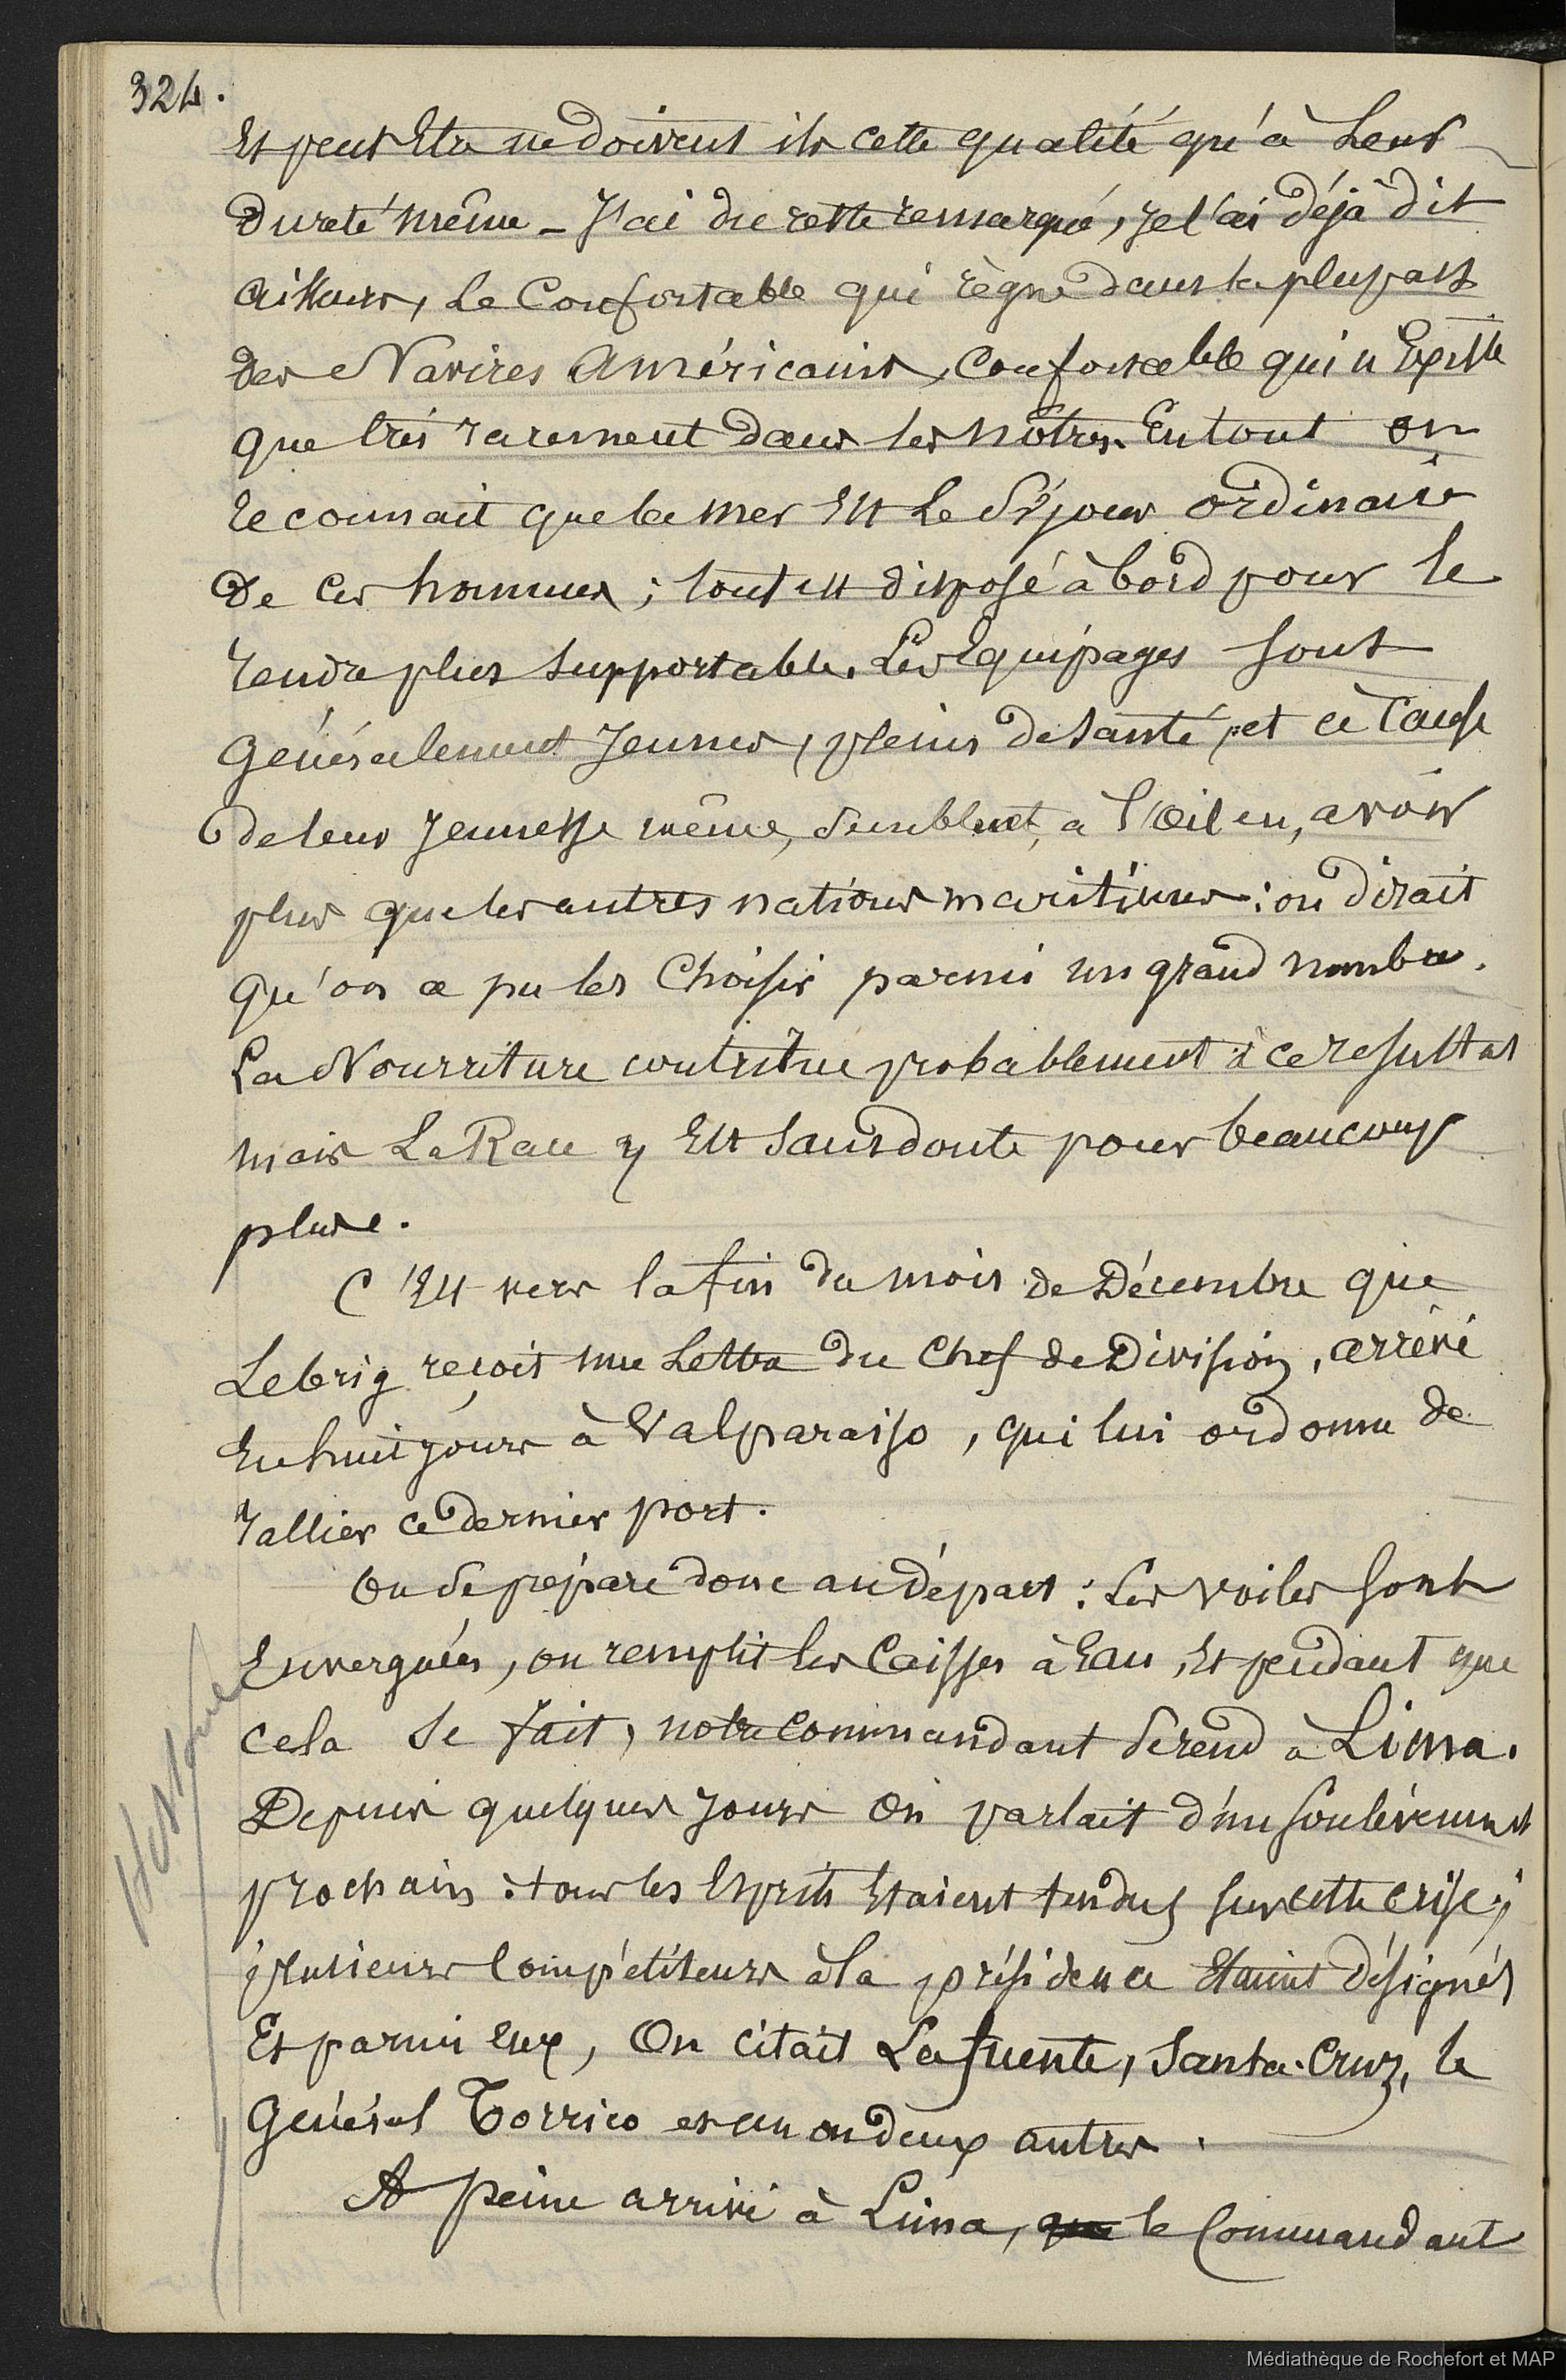 324.
Et peut Etre ne doivent ils cette qualité qu'à Leur
dureté même _ J'ai du reste remarqué, je l'ai déjà dit
ailleurs, Le Confortable qui règne dans la plupart
des Navires Américains, Confortable qui n'Existe
que très rarement dans les nôtres. En tout on
reconnait que la mer Est Le Séjour ordinaire
de ces hommes ; tout est disposé à bord pour le
rendre plus supportable. Les Equipages sont
généralement Jeunes, pleins de santé, et à Cause
de leur Jeunesse même, semblent, à l'Œil en, avoir
plus que les autres nations maritimes : on dirait
qu'on a pu les Choisir parmi un grand nombre.
La Nourriture contribue probablement à ce resultat
mais La Race y Est sans doute pour beaucoup
plus.
C'Est vers la fin du mois de Décembre que
Le brig reçoit une Lettre du Chef de Division, arrivé
En huit jours à Valparaiso, qui lui ordonne de
rallier ce dernier port.
On se prépare donc au départ : Les voiles sont
Enverguées, on remplit les Caisses à Eau, Et pendant que
cela se fait, notre Commandant se rend à Lima.
Depuis quelques Jours On parlait d'un soulèvement
prochain : tous les Esprits Etaient tendus sur cette crise ;
plusieurs Compétiteurs à la présidence Etaient désignés
Et parmi Eux, On citait Lafuente, Santa-Cruz, le
Général Torrico et un ou deux autres.
A peine arrivé à Lima, que le Commandant
Médiathèque de Rochefort et MAP